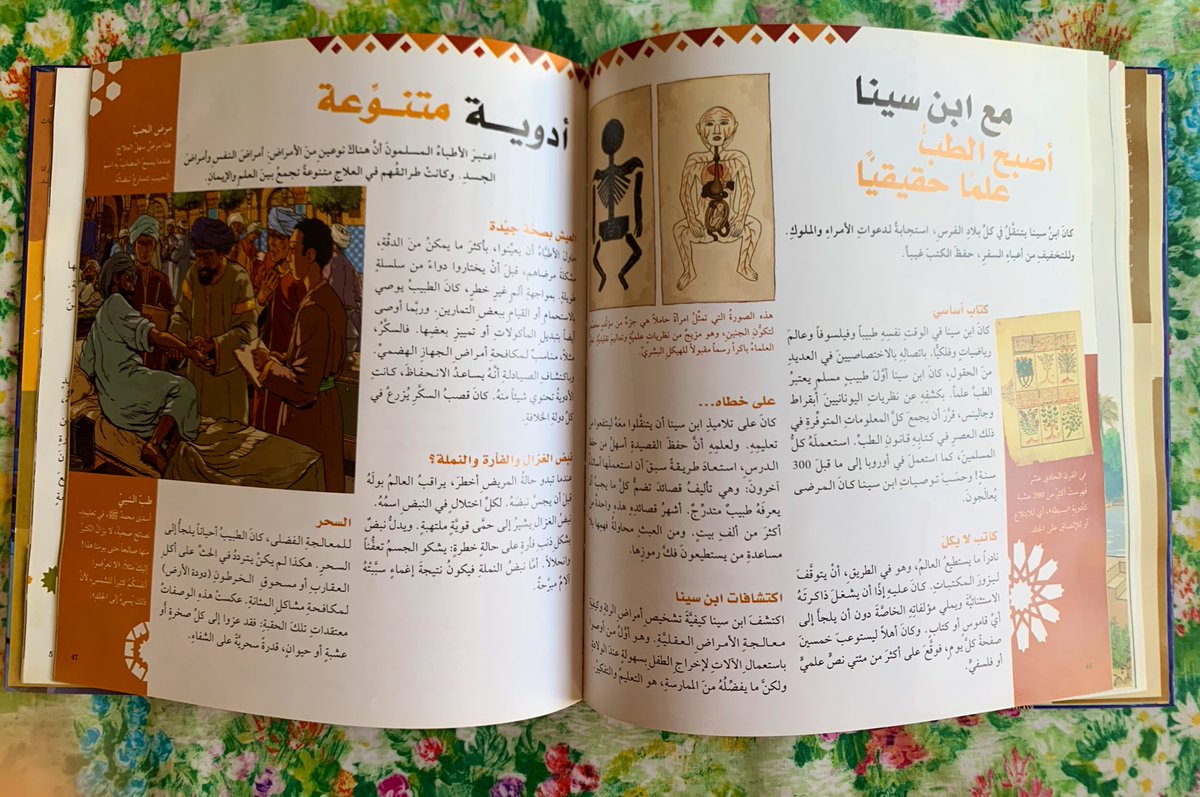 مع ابن سينا
أصبح الطبُّ
علمًا حقيقيًّا
كانَ ابنُ سينا يتنقَّلُ في كلِّ بلادِ الفرسِ، استجابةً لدعواتِ الأمراءِ والملوكِ.
وللتخفيفِ من أعباءِ السفرِ، حفظَ الكتبَ غيباً.
كتاب أساسي
كانَ ابن سينا في الوقت نفسِهِ طبيباً وفيلسوفاً وعالمَ
رياضيات وفلكيًّا. باتصالِهِ بالاختصاصيين في العديد
من الحقولِ، كانَ ابن سينا أوَّلَ طبيبٍ مسلمٍ يعتبرُ
الطبَّ علماً. بكشفِهِ عن نظريات اليونانيينَ أبقراط
وجالينس، قرَّرَ أن يجمعَ كلَّ المعلوماتِ المتوفِّرةِ في
ذلك العصرِ في كتابِهِ قانون الطبِّ. استعملَهُ كلُّ
المسلمين، كما استعملَ في أوروبا إلى ما قبلَ 300
سنة! وحسبَ توصياتِ ابن سينا كانَ المرضى
يُعالَجونَ.
كاتب لا يكلّ
نادراً ما يستطيعُ العالمُ، وهو في الطريقِ، أنْ يتوقَّفَ
ليزورَ المكتباتِ. كانَ عليهِ إذًا أن يشغلَ ذاكرتَهُ
الاستثنائيَّةَ ويملي مؤلفاتِهِ الخاصَّةَ دون أن يلجأَ إلى
أيِّ قاموسٍ أو كتابٍ. وكانَ أهلاً ليستوعبَ خمسينَ
صفحةً كلَّ يومٍ، فوقَّعَ على أكثرَ من مئتي نصٍّ علميٍّ
أو فلسفيٍّ.
في القرن الحادي عشر
فهرست أكثرُ من 200 عشبة
كأدوية «بسيطة»، أي للابتلاع
أو للإلصاق على الجلد.
46
هذه الصورةُ التي تمثِّلُ امرأةً حاملاً هي جزءٌ من مؤلَّف
لتكوُّن الجنين، وهو مزيجٌ من نظرياتٍ علميةٍ وتعاليم
العلماءُ باكراً رسماً مقبولاً للهيكل البشريّ.
على خطاه...
كانَ على تلاميذِ ابن سينا أن يتنقَّلوا معَهُ ليتابعوا
تعليمِهِ. ولعلمِهِ أنَّ حفظَ القصيدةِ أسهلُ من حفظِ
الدرسِ، استعادَ طريقةً سبقَ أن استعملَها
آخرونَ: وهي تأليفُ قصائدَ تضمُّ كلَّ ما يجبُ أن
يعرفَهُ طبيبٌ متدرِّجٌ. أشهرُ قصائدِهِ هذه واحدةٌ من
أكثرَ من ألفي بيتٍ. ومن العبثِ محاولةُ فهمِها
مساعدةٍ من يستطيعونَ فكَّ رموزِها.
اكتشافات ابن سينا
اكتشفَ ابنُ سينا كيفيَّةَ تشخيصِ أمراضِ الرئةِ وكيفيةَ
معالجةِ الأمراضِ العقليَّةِ. وهو أوَّلُ من أوصوا
باستعمالِ الآلاتِ لإخراجِ الطفلِ بسهولةٍ عندَ الولادةِ.
ولكنَّ ما يفضِّلُهُ منَ الممارسةِ، هو التعليمُ والتفكيرُ.
أدوية متنوِّعة
اعتبرَ الأطباءُ المسلمونَ أنَّ هناكَ نوعينِ منَ الأمراضِ: أمراضَ النفسِ وأمراضَ
الجسدِ. وكانتْ طرائقُهم في العلاجِ متنوعةً تجمعُ بينَ العلمِ والإيمانِ.
العيش بصحّة جيّدة
حاولَ الأطبَّاءُ أن يعيِّنوا، بأكثرَ ما يمكنُ منَ الدقَّةِ،
مشكلةَ مرضاهم، قبلَ أنْ يختاروا دواءً من سلسلةٍ
طويلةٍ. بمواجهةِ ألمٍ غيرِ خطرٍ، كانَ الطبيبُ يوصي
بالاستحمامِ أو القيامِ ببعضِ التمارين. وربَّما أوصى
أيضاً بتبديلِ المأكولاتِ أو تمييزِ بعضِها. فالسكَّرُ،
مثلاً، مناسبٌ لمكافحةِ أمراضِ الجهازِ الهضميِّ.
وباكتشافِ الصيادلةِ أنَّهُ يساعدُ الانحفاظَ، كانت
الأدويةُ تحتوي شيئاً منهُ. كانَ قصبُ السكَّرِ يُزرعُ في
كلِّ دولةِ الخلافةِ.
نبض الغزال والفأرة والنملة؟
عندما تبدو حالةُ المريضِ أخطرَ، يراقبُ العالمُ بولَهُ
قبلَ أن يجسَّ نبضَهُ. لكلِّ اختلالٍ في النبضِ اسمُهُ.
نبضُ الغزالِ يشيرُ إلى حمَّى قويَّةٍ ملتهبةٍ. ويدلُّ نبضٌ
بشكلِ ذنبِ فأرةٍ على حالةٍ خطرةٍ: يشكو الجسمُ تعفُّناً
وانحلالاً. أمَّا نبضُ النملةِ فيكونُ نتيجةَ إغماءٍ سبَّبَتْهُ
آلامٌ مبرِّحةٌ.
السحر
للمعالجةِ الفضلى، كانَ الطبيبُ أحياناً يلجأُ إلى
السحرِ. هكذا لم يكنْ يتردَّدُ في الحثِّ على أكلِ
العقاربِ أو مسحوقِ الخرطونِ (دودة الأرض)
لمكافحةِ مشاكلِ المثانةِ. عكستْ هذهِ الوصفاتُ
معتقداتِ تلكَ الحقبةِ: فقد عزوا إلى كلِّ صخرةٍ أو
عشبةٍ أو حيوانٍ، قدرةً سحريَّةً على الشفاءِ.
مرض الحبّ
هذا مرضٌ سهلُ العلاجِ:
عندما يسمعُ المصابُ به اسمَ
الحبيبِ تتسارعُ نبضاتُهُ.
طبّ النبيّ
أسدى محمدٌ ﷺ، في تعليمِهِ،
نصائحَ صحيةً، لا تزالُ الكثيرُ
منها صالحاً حتى يومِنا هذا!
إليكَ مثلاً: «لا تعرِّضوا
أنفسَكم كثيراً للشمسِ، لأنَّ
ذلك يسيءُ إلى الجلدِ».
47